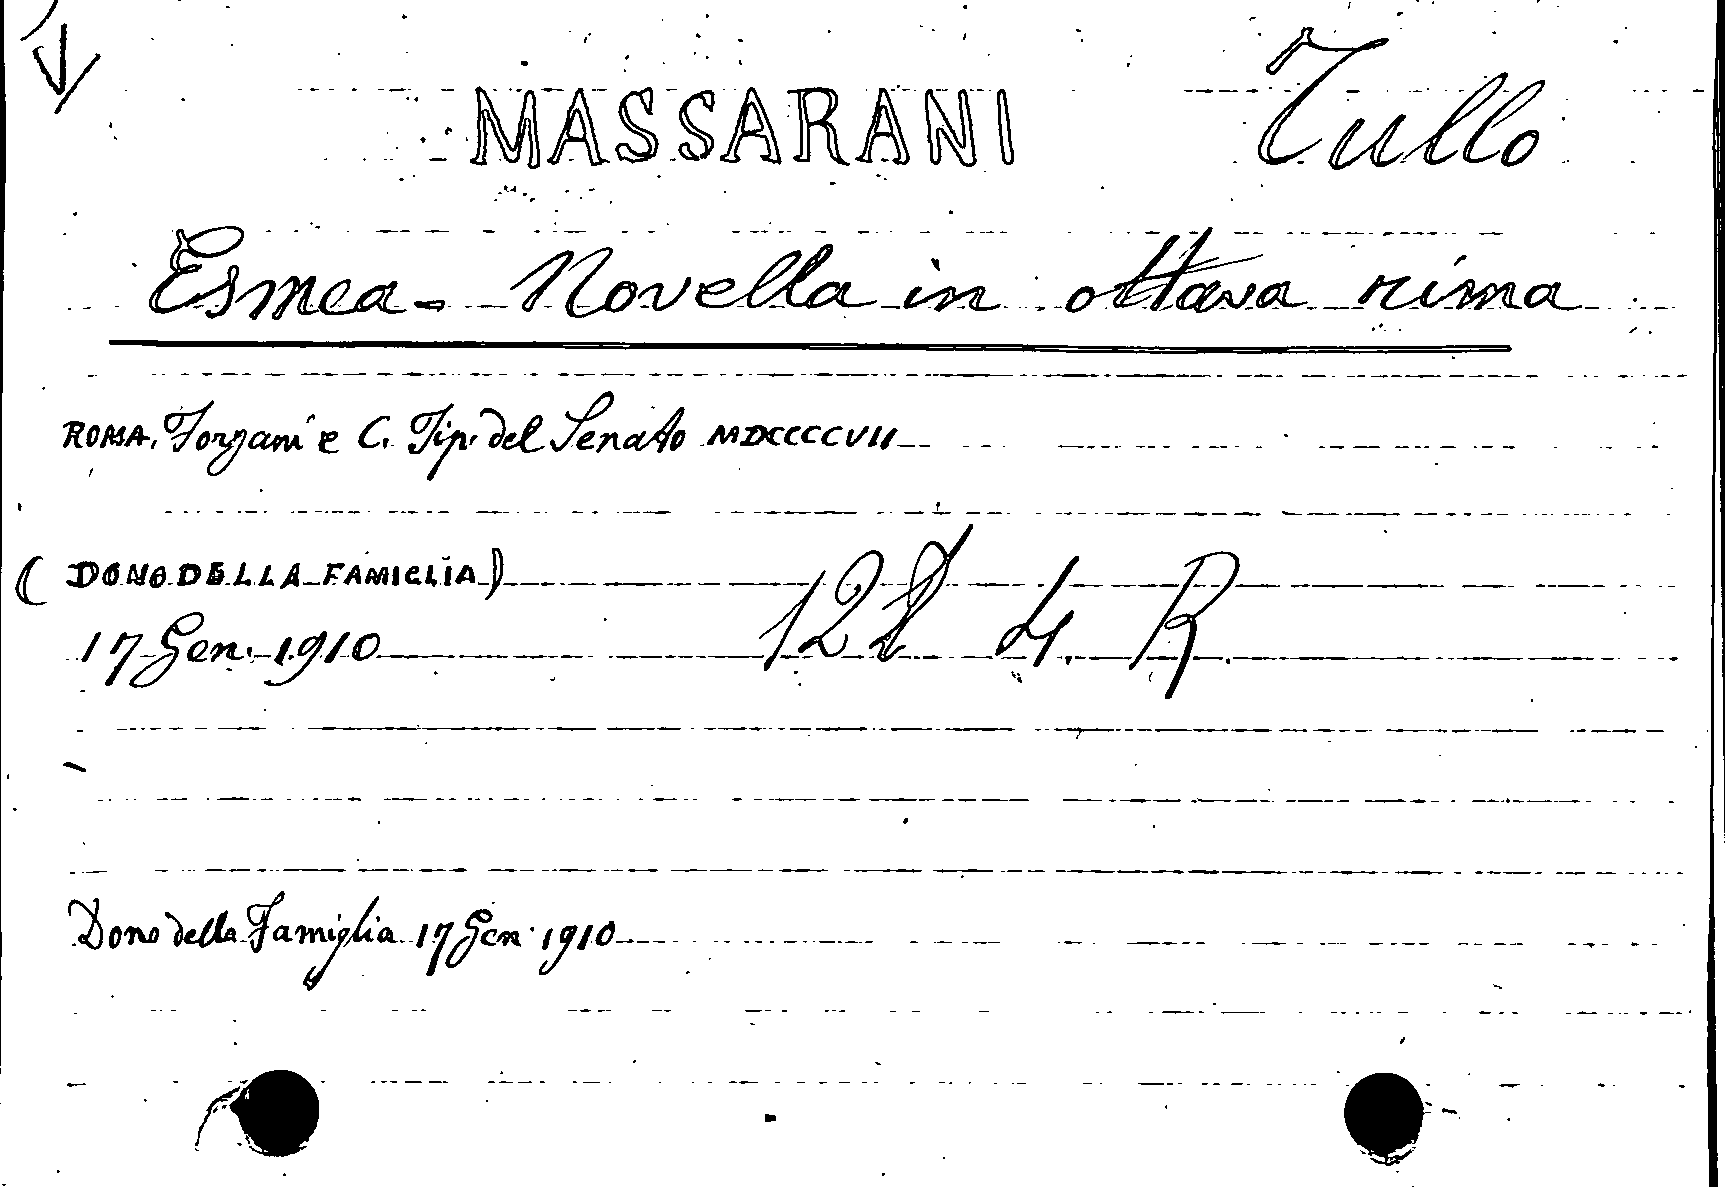 MASSARANI Tullo
Esmea - Novella in ottava rima
ROMA, Forzani e C. Tip. del Senato MDCCCCVII
(DONO DELLA FAMIGLIA)
17 Gen. 1910 4. R.
Dono della Famiglia 17 Gen. 1910